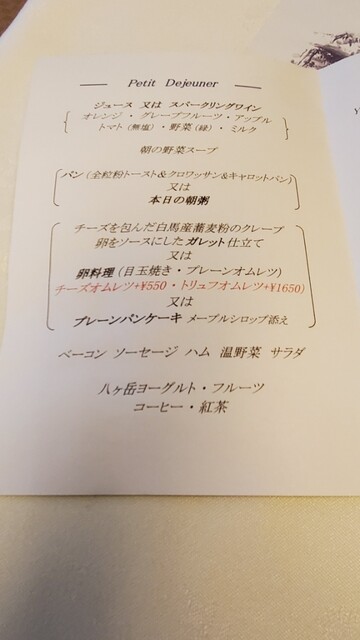 Petit Dejeuner
ジュース 又は スパークリングワイン
オレンジ ・ グレープフルーツ ・ アップル
トマト (無塩) ・ 野菜 (緑) ・ ミルク
朝の野菜スープ
パン (全粒粉トースト&クロワッサン&キャロットパン)
又は
本日の朝粥
チーズを包んだ白馬産蕎麦粉のクレープ
卵をソースにしたガレット仕立て
又は
卵料理 (目玉焼き・プレーンオムレツ)
チーズオムレツ+¥550・トリュフオムレツ+¥1650)
又は
プレーンパンケーキ メープルシロップ添え
ベーコン ソーセージ ハム 温野菜 サラダ
八ヶ岳ヨーグルト・フルーツ
コーヒー・紅茶